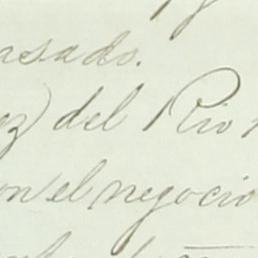 asado.
ez) del Rio
on el negocio